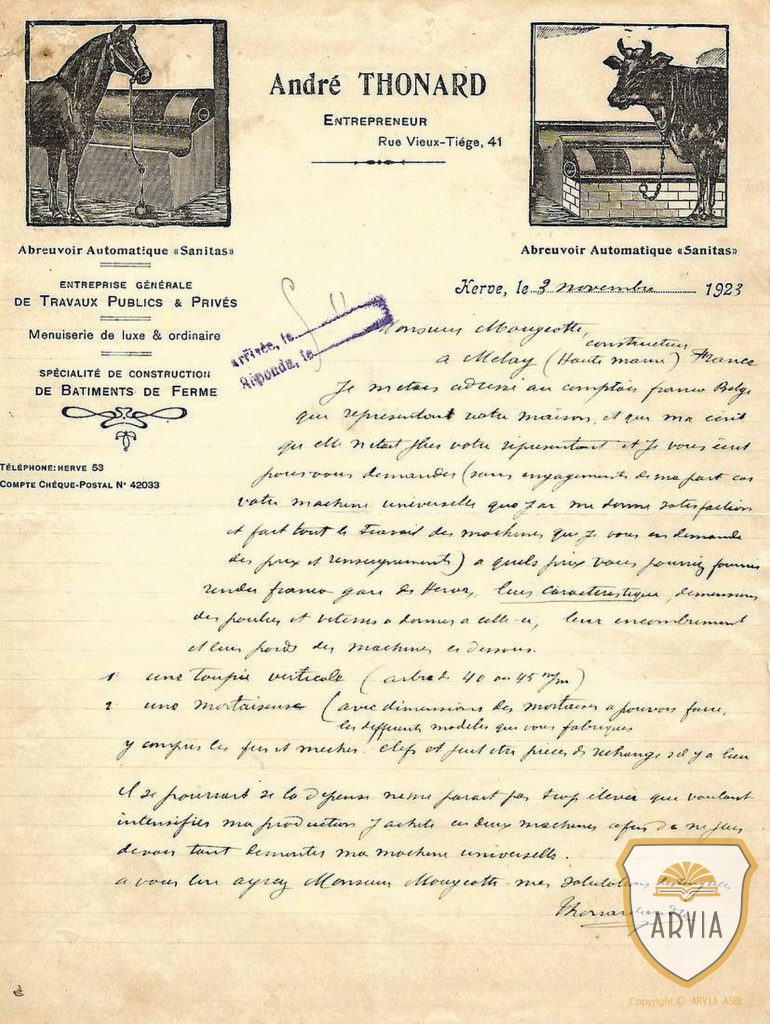 André THONARD
ENTREPRENEUR
Rue Vieux-Tiége, 41
Abreuvoir Automatique «Sanitas»
Abreuvoir Automatique «Sanitas»
ENTREPRISE GÉNÉRALE
DE TRAVAUX PUBLICS & PRIVÉS
Menuiserie de luxe & ordinaire
SPÉCIALITÉ DE CONSTRUCTION
DE BATIMENTS DE FERME
TÉLÉPHONE: HERVE 53
COMPTE CHÉQUE-POSTAL N° 42033
Herve, le 3 novembre 1923
Arrivée, le
Répondu, le
Monsieur Mougeotte,
constructeur
a Melay (Haute marne) France
Je metais adressé au comptoir franco Belge
que representant votre maison, et que ma écrit
qu elle netait plus votre représentant et Je vous écrit
pour vous demander (sans engagements de ma part car
votre machine universelle que j'ai me donne satisfaction
et fait tout le travail des machines que Je vous en demande
des prix et renseignements) a quels prix vous pourriez fournir
rendu franco gare de Herve, leurs caracteristique, dimensions
des poulies et vitesses a donner a celle-ci, leur encombrement
et leur poids des machines ci dessous.
1 une toupie verticale (arbre de 40 ou 45 m/m)
2 une mortaiseuse (avec dimensions des mortaises a pouvoir faire,
les differents modeles que vous fabriquez
y compris les fers et meches. clefs et peut etre pieces de rechange s'il y a lieu
il se pourrait se la depense neme parait pas trop élever que voulant
intensifier ma production J achete ces deux machines afin de ne plus
devoir tant demonter ma machine universelle.
a vous lire ayrez Monsieur Mougeotte mes salutations
Thonard
ARVIA
Copyright © ARVIA ASBL